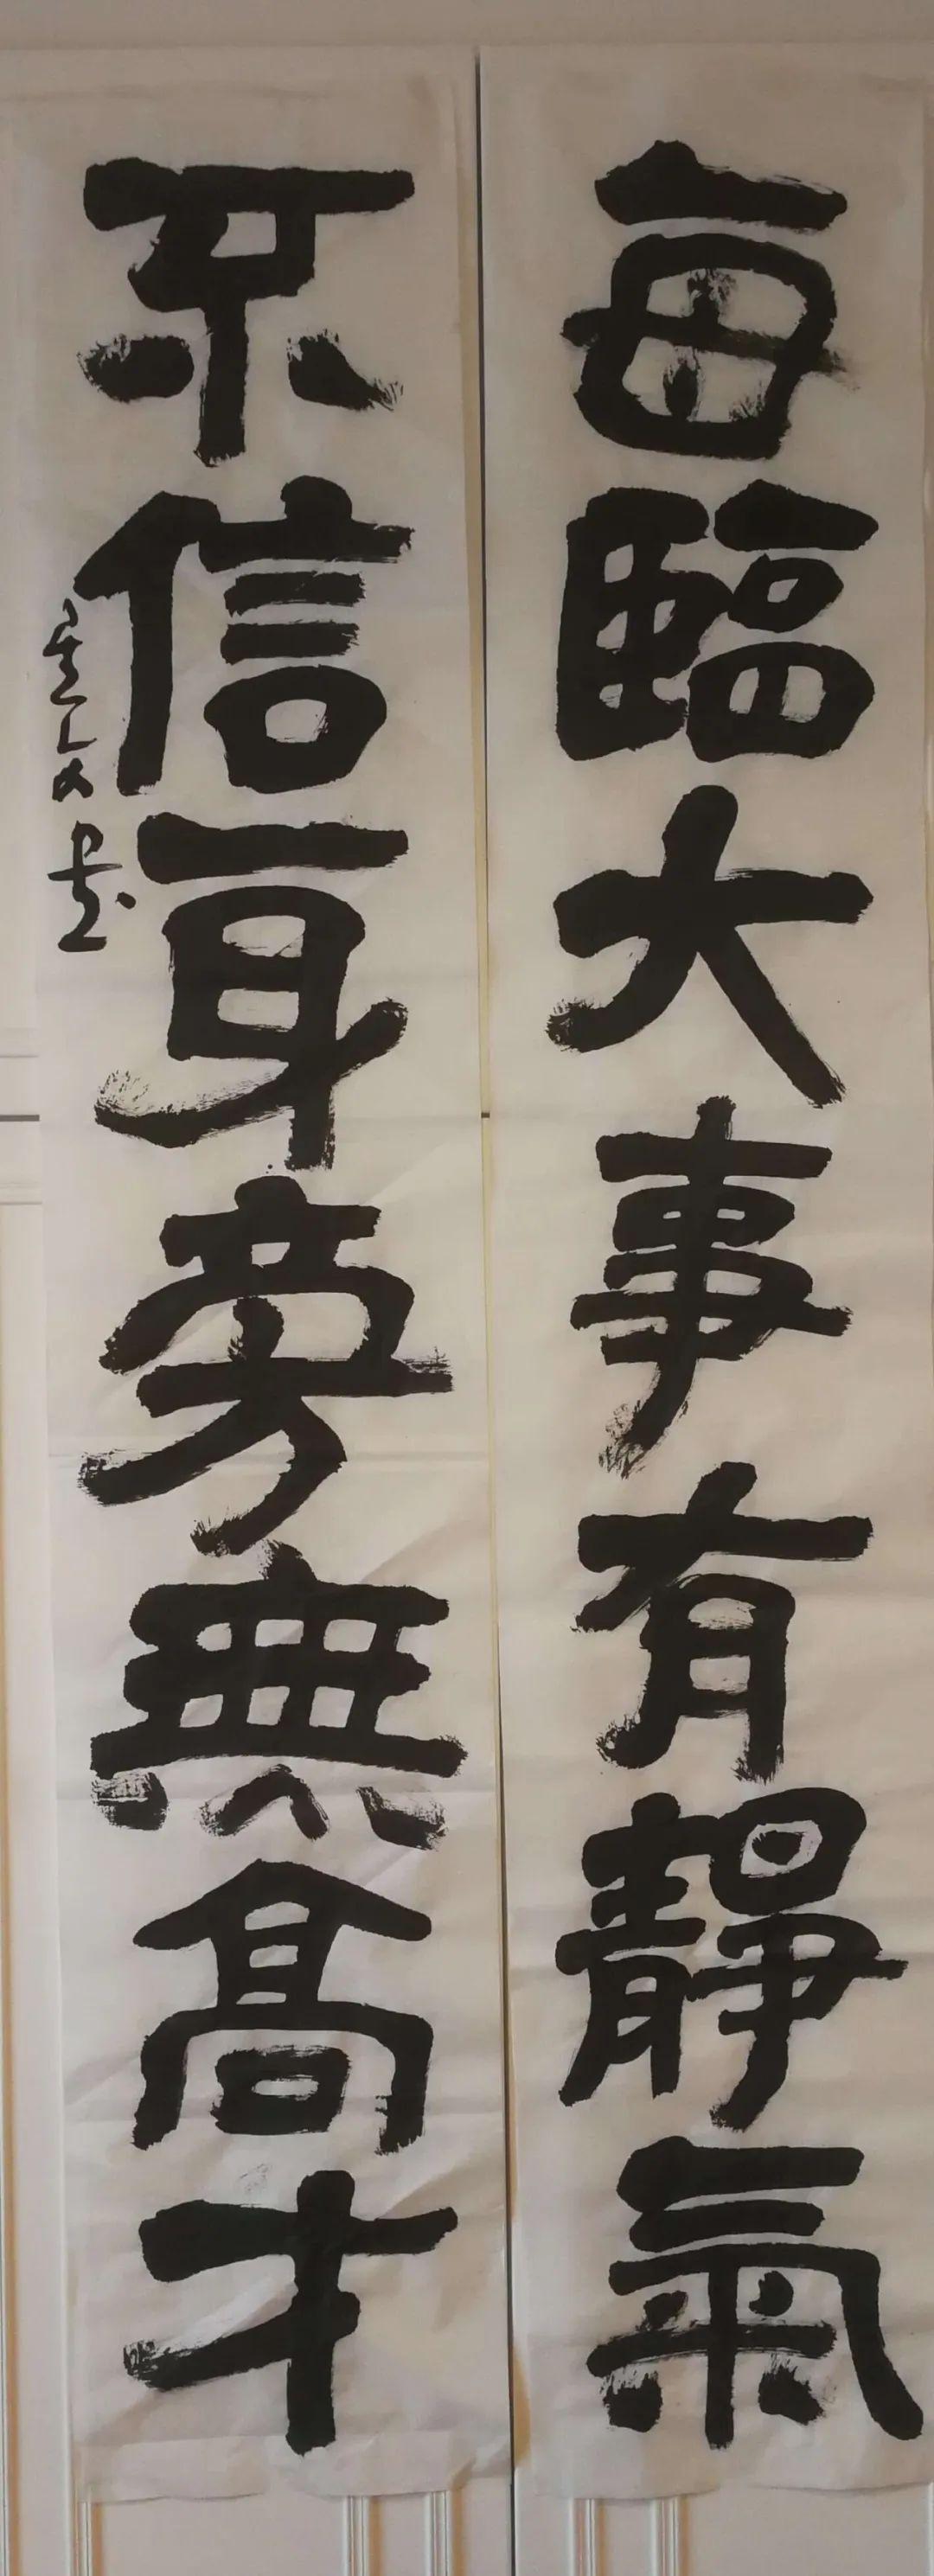 每臨大事有靜氣
不信耳旁無高才